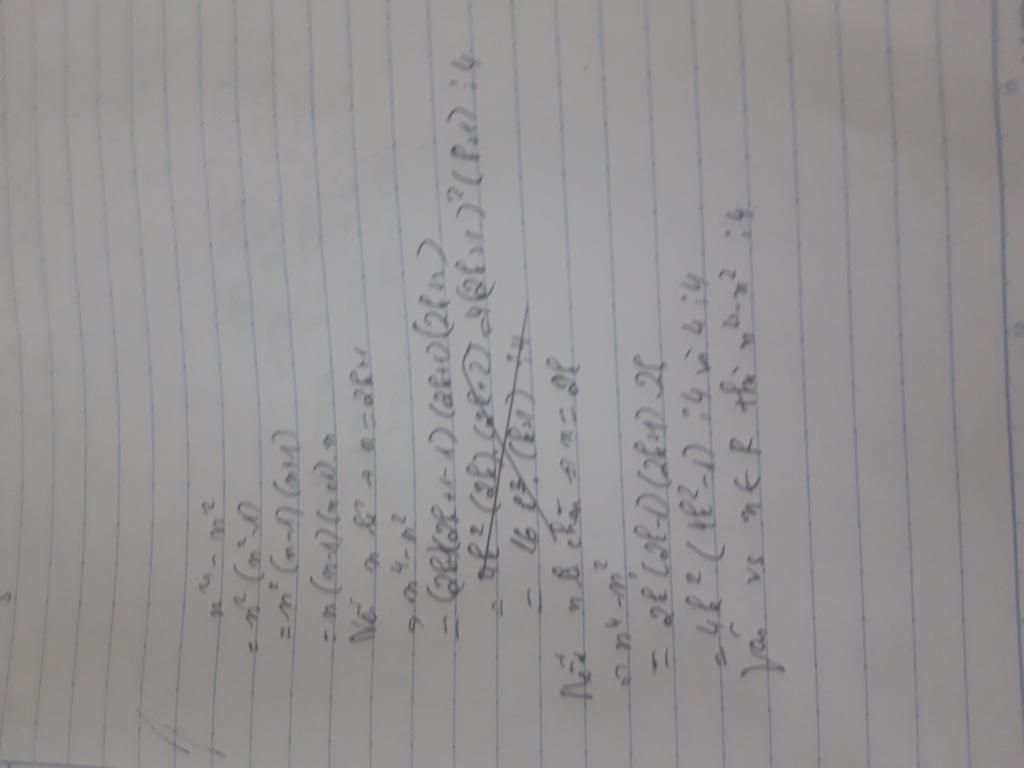 n⁴ - n²
= n²(n²-1)
= n²(n-1)(n+1)
= n(n-1)(n+1) n
Nếu n lẻ → n = 2k+1
⇒ n⁴ - n²
= (2k+1-1)(2k+1)
= 4k²(2k)(2k+2) = 4(2k+1)²(k+1) ⋮ 4
= 16 (k+1) ⋮ 4
Nếu n là chẵn ⇒ n = 2k
⇒ n⁴ - n²
= 2k(2k-1)(2k+1).2k
= 4k²(4k²-1) ⋮ 4 vì 4 ⋮ 4
Vậy vs n ∈ thì n⁴ - n² ⋮ 4